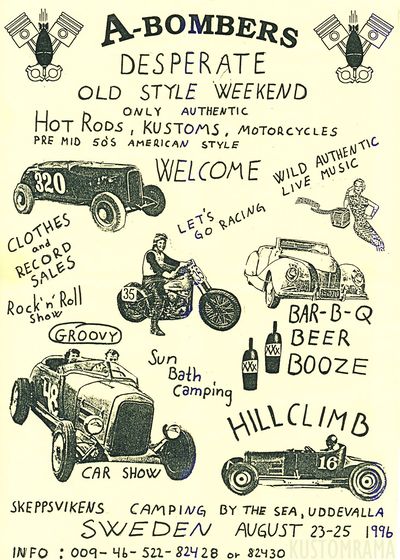 A-BOMBERS
DESPERATE
OLD STYLE WEEKEND
ONLY AUTHENTIC
HOT RODS, KUSTOMS, MOTORCYCLES
PRE MID 50'S AMERICAN STYLE
WELCOME
WILD AUTHENTIC
LIVE MUSIC
320
CLOTHES
and
RECORD
SALES
LET'S
GO RACING
Rock'n'Roll
Show
35
BAR-B-Q
BEER
BOOZE
XXX
XXX
GROOVY
Sun
Bath
Camping
HILLCLIMB
16
CAR SHOW
SKEPPSVIKENS CAMPING BY THE SEA, UDDEVALLA
SWEDEN AUGUST 23-25 1996
INFO: 009-46-522-82428 or 82430
KUSTOMRAMA